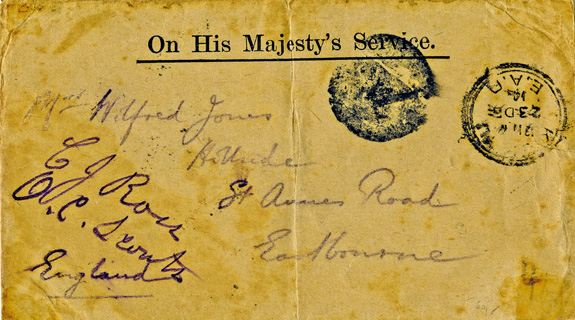 On His Majesty's Service.
Mrs Wilfred Jones
Hillside
St Annes Road
Eastbourne
England
C J Ross
O.C. Scouts
E.A.P.
23 DE
14